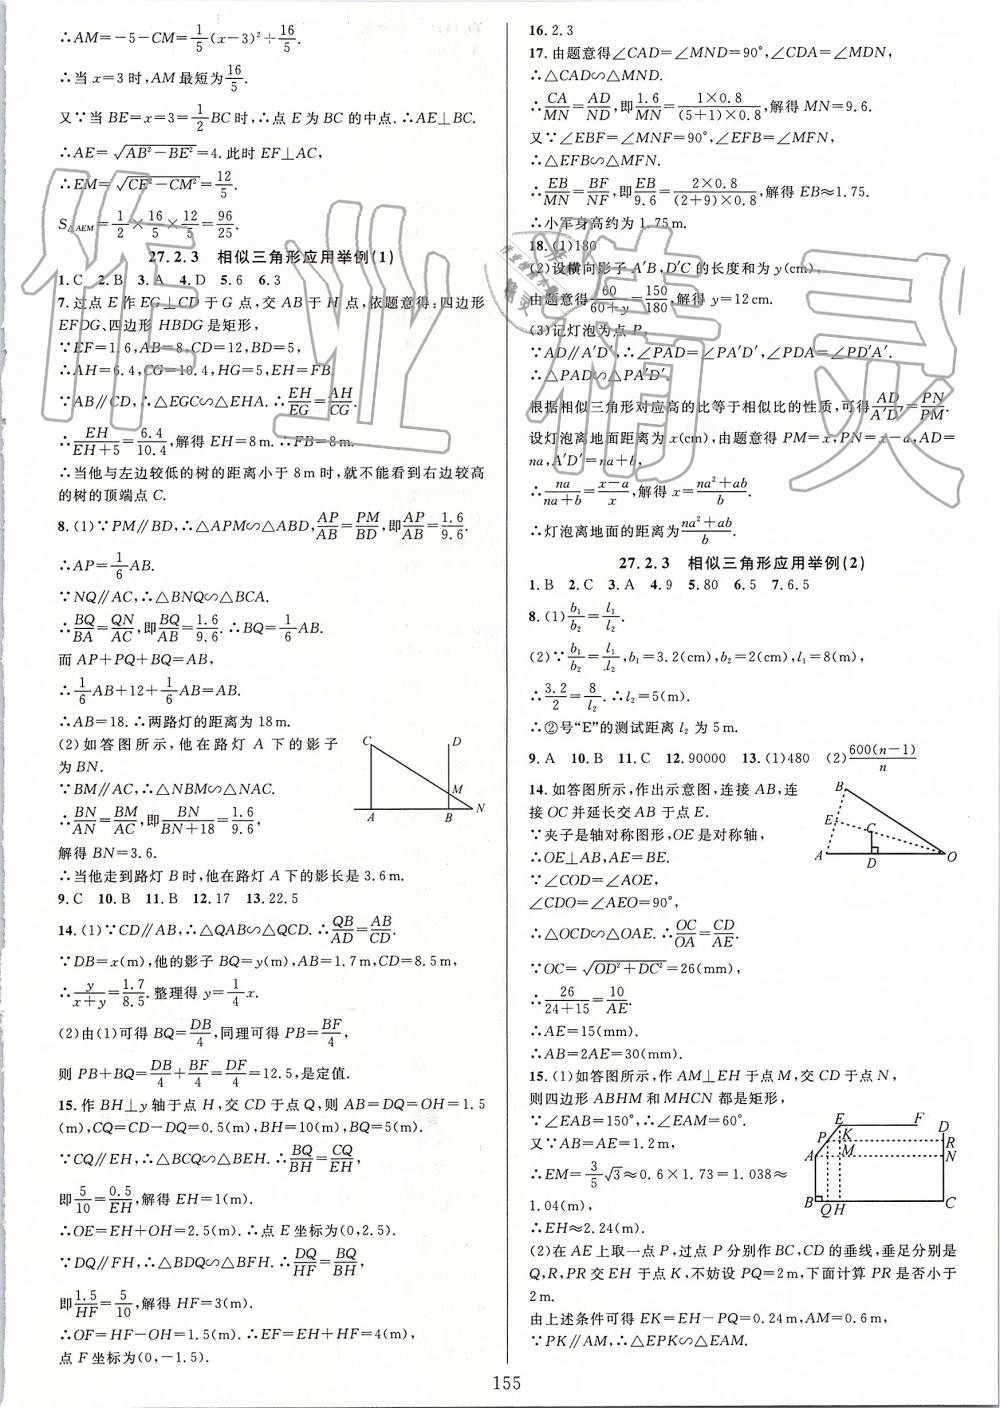 ∴AM=-5-CM=1/5(x-3)²+16/5.
∴当 x=3时,AM 最短为16/5.
又∵当 BE=x=3=1/2BC时,∴点 E 为 BC 的中点.∴AE⊥BC.
∴AE=√(AB²-BE²)=4.此时 EF⊥AC,
∴EM=√(CE²-CM²)=12/5.
S△AEM=1/2×16/5×12/5=96/25
27.2.3 相似三角形应用举例(1)
1.C 2.B 3.A 4.D 5.6 6.3
7.过点 E 作 EG⊥CD 于 G 点,交 AB 于 H 点,依题意得:四边形
EFDG、四边形 HBDG 是矩形,
∵EF=1.6,AB=8,CD=12,BD=5,
∴AH=6.4,CG=10.4,HG=5,EH=FB.
∵AB∥CD,∴△EGC∽△EHA.∴EH/EG=AH/CG.
∴EH/(EH+5)=6.4/10.4,解得 EH=8m.∴FB=8m.
∴当他与左边较低的树的距离小于 8m 时,就不能看到右边较高
的树的顶端点 C.
8.(1)∵PM∥BD,∴△APM∽△ABD,AP/AB=PM/BD,即AP/AB=1.6/9.6.
∴AP=1/6AB.
∵NQ∥AC,∴△BNQ∽△BCA.
∴BQ/BA=QN/AC,即BQ/AB=1.6/9.6.∴BQ=1/6AB.
而 AP+PQ+BQ=AB,
∴1/6AB+12+1/6AB=AB.
∴AB=18.∴两路灯的距离为 18m.
(2)如答图所示,他在路灯 A 下的影子
为 BN.
∵BM∥AC,∴△NBM∽△NAC.
∴BN/AN=BM/AC,即BN/(BN+18)=1.6/9.6,
解得 BN=3.6.
∴当他走到路灯 B 时,他在路灯 A 下的影长是 3.6m.
C D M A B N
9.C 10.B 11.B 12.17 13.22.5
14.(1)∵CD∥AB,∴△QAB∽△QCD.∴QB/AD=AB/CD.
∵DB=x(m),他的影子 BQ=y(m),AB=1.7m,CD=8.5m,
∴y/(x+y)=1.7/8.5.整理得 y=1/4x.
(2)由(1)可得 BQ=DB/4,同理可得 PB=BF/4,
则 PB+BQ=DB/4+BF/4=DF/4=12.5,是定值.
15.作 BH⊥y 轴于点 H,交 CD 于点 Q,则 AB=DQ=OH=1.5
(m),CQ=CD-DQ=0.5(m),BH=10(m),BQ=5(m).
∵CQ∥EH,∴△BCQ∽△BEH.∴BQ/BH=CQ/EH,
即5/10=0.5/EH,解得 EH=1(m).
∴OE=EH+OH=2.5(m).∴点 E 坐标为(0,2.5).
∵DQ∥FH,∴△BDQ∽△BFH.∴DQ/HF=BQ/BH,
即1.5/HF=5/10,解得 HF=3(m).
∴OF=HF-OH=1.5(m).∴EF=EH+HF=4(m),
点 F 坐标为(0,-1.5).
16.2.3
17.由题意得∠CAD=∠MND=90°,∠CDA=∠MDN,
∴△CAD∽△MND.
∴CA/MN=AD/ND,即1.6/MN=(1×0.8)/((5+1)×0.8),解得 MN=9.6.
又∵∠EBF=∠MNF=90°,∠EFB=∠MFN,
∴△EFB∽△MFN.
∴EB/MN=BF/NF,即EB/9.6=(2×0.8)/((2+9)×0.8),解得 EB≈1.75.
∴小军身高约为 1.75m.
18.(1)180
(2)设横向影子 A′B,D′C 的长度和为 y(cm),
由题意得60/(60+y)=150/180,解得 y=12cm.
(3)记灯泡为点 P,
∵AD∥A′D′,∴∠PAD=∠PA′D′,∠PDA=∠PD′A′.
∴△PAD∽△PA′D′.
根据相似三角形对应高的比等于相似比的性质,可得AD/A′D′=PN/PM.
设灯泡离地面距离为 x(cm),由题意得 PM=x,PN=x-a,AD=
na,A′D′=na+b,
∴na/(na+b)=(x-a)/x,解得 x=(na²+ab)/b.
∴灯泡离地面的距离为(na²+ab)/b.
27.2.3 相似三角形应用举例(2)
1.B 2.C 3.A 4.9 5.80 6.5 7.6.5
8.(1)b₁/b₂=l₁/l₂.
(2)∵b₁/b₂=l₁/l₂,b₁=3.2(cm),b₂=2(cm),l₁=8(m),
∴3.2/2=8/l₂.∴l₂=5(m).
∴②号“E”的测试距离 l₂ 为 5m.
9.A 10.B 11.C 12.90000 13.(1)480 (2)600(n-1)/n
14.如答图所示,作出示意图,连接 AB,连
接 OC 并延长交 AB 于点 E.
∵夹子是轴对称图形,OE 是对称轴,
∴OE⊥AB,AE=BE.
∵∠COD=∠AOE,
∠CDO=∠AEO=90°.
∴△OCD∽△OAE.∴OC/OA=CD/AE.
B E C A D O
∵OC=√(OD²+DC²)=26(mm),
∴26/(24+15)=10/AE.
∴AE=15(mm).
∴AB=2AE=30(mm).
15.(1)如答图所示,作 AM⊥EH 于点 M,交 CD 于点 N,
则四边形 ABHM 和 MHCN 都是矩形,
∵∠EAB=150°,∴∠EAM=60°.
又∵AB=AE=1.2m,
∴EM=3/5√3≈0.6×1.73=1.038≈
1.04(m).
∴EH≈2.24(m).
E F D P K R A M N B Q H C
(2)在 AE 上取一点 P,过点 P 分别作 BC,CD 的垂线,垂足分别是
Q,R,PR 交 EH 于点 K,不妨设 PQ=2m,下面计算 PR 是否小于
2m.
由上述条件可得 EK=EH-PQ=0.24m,AM=0.6m,
∵PK∥AM,∴△EPK∽△EAM.
155
作业精灵